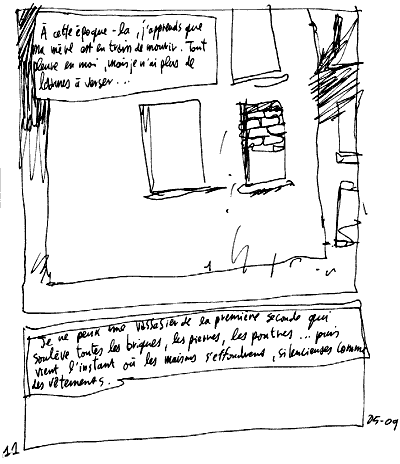 À cette époque-là, j'apprends que
ma mère est en train de mourir. Tout
pleure en moi, mais je n'ai plus de
larmes à verser...
Je ne peux me rassasier de la première seconde qui
soulève toutes les briques, les pierres, les poutres... puis
vient l'instant où les maisons s'effondrent, silencieuses comme
des vêtements.
25-09
11